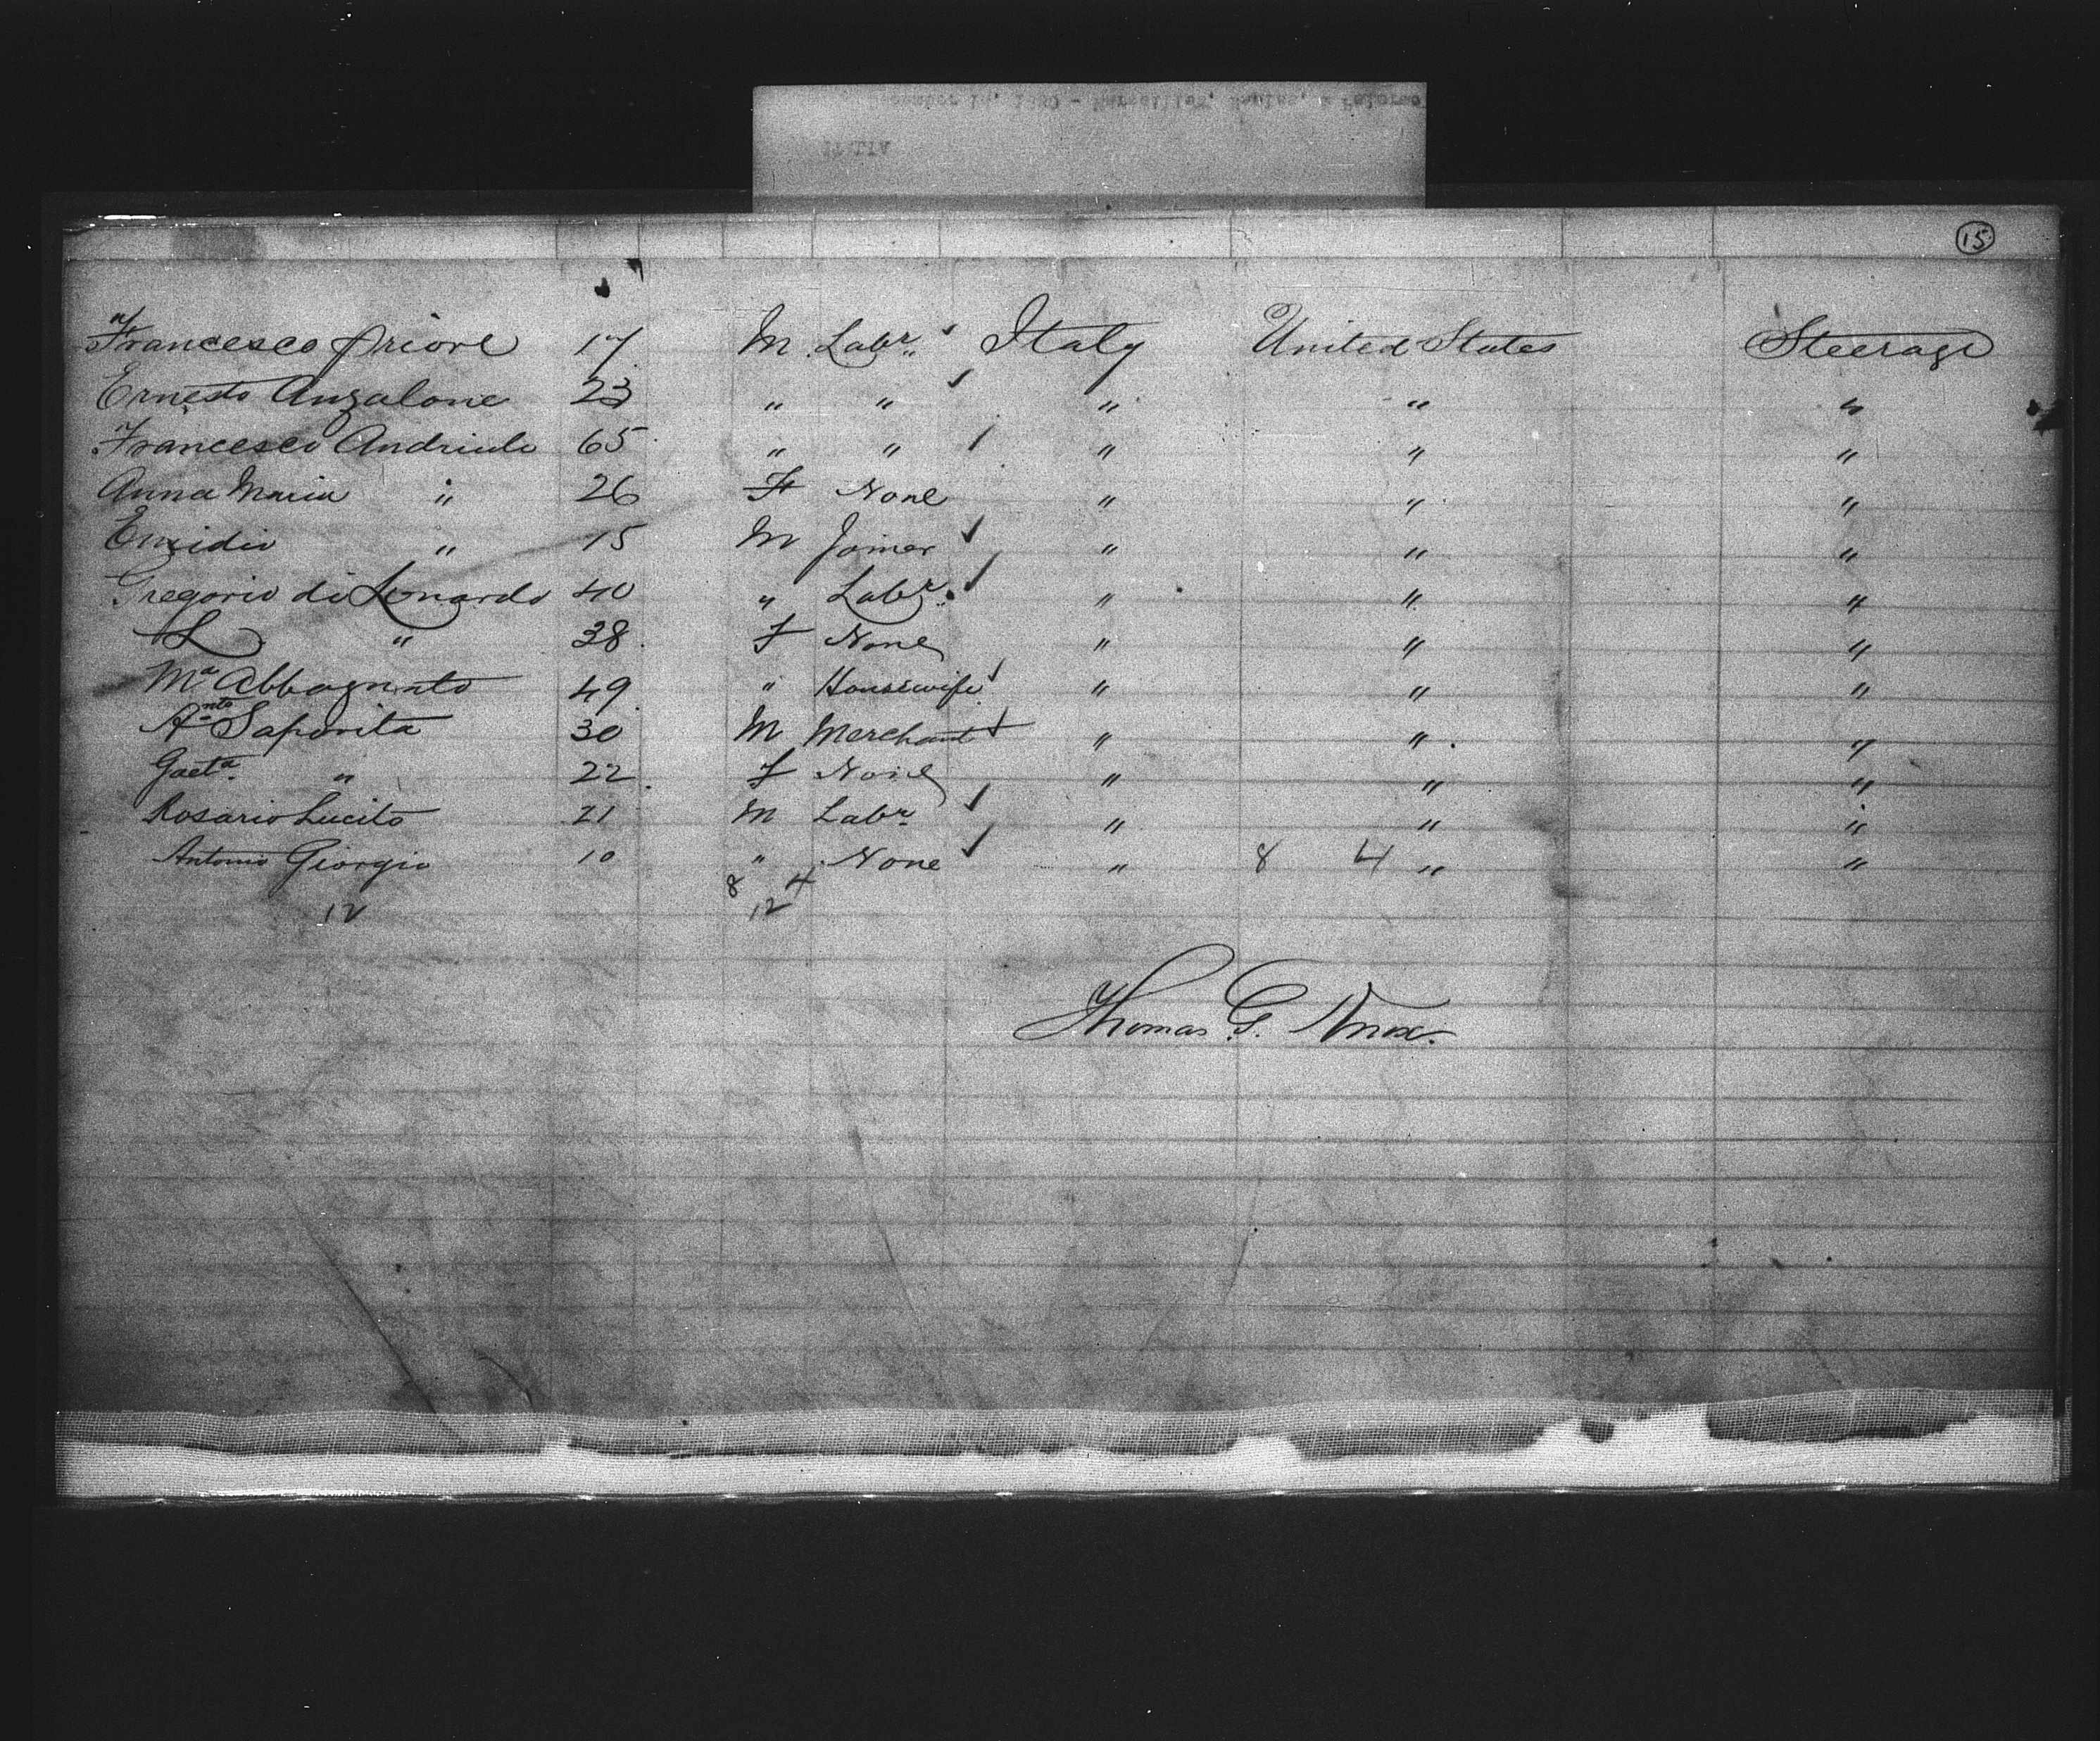 December 14, 1880 - Marseilles, Naples, & Palermo
ITALIA
15
Francesco Priore 17 M Labr Italy United States Steerage
Ernesto Anzalone 23 " " " " "
Francesco Andriulo 65 " " " " "
Anna Maria " 26 F None " " "
Emidio " 15 M Joiner " " "
Gregorio di Lonardo 40 " Labr " " "
L " 38 F None " " "
Ma Abbagnato 49 " Housewife " " "
Anto Saporita 30 M Merchant " " "
Gaeta " 22 F None " " "
Rosario Lucito 21 M Labr " " "
Antonio Giorgio 10 " None " 8 4 " "
8 4
12 12
Thomas G. Knox.